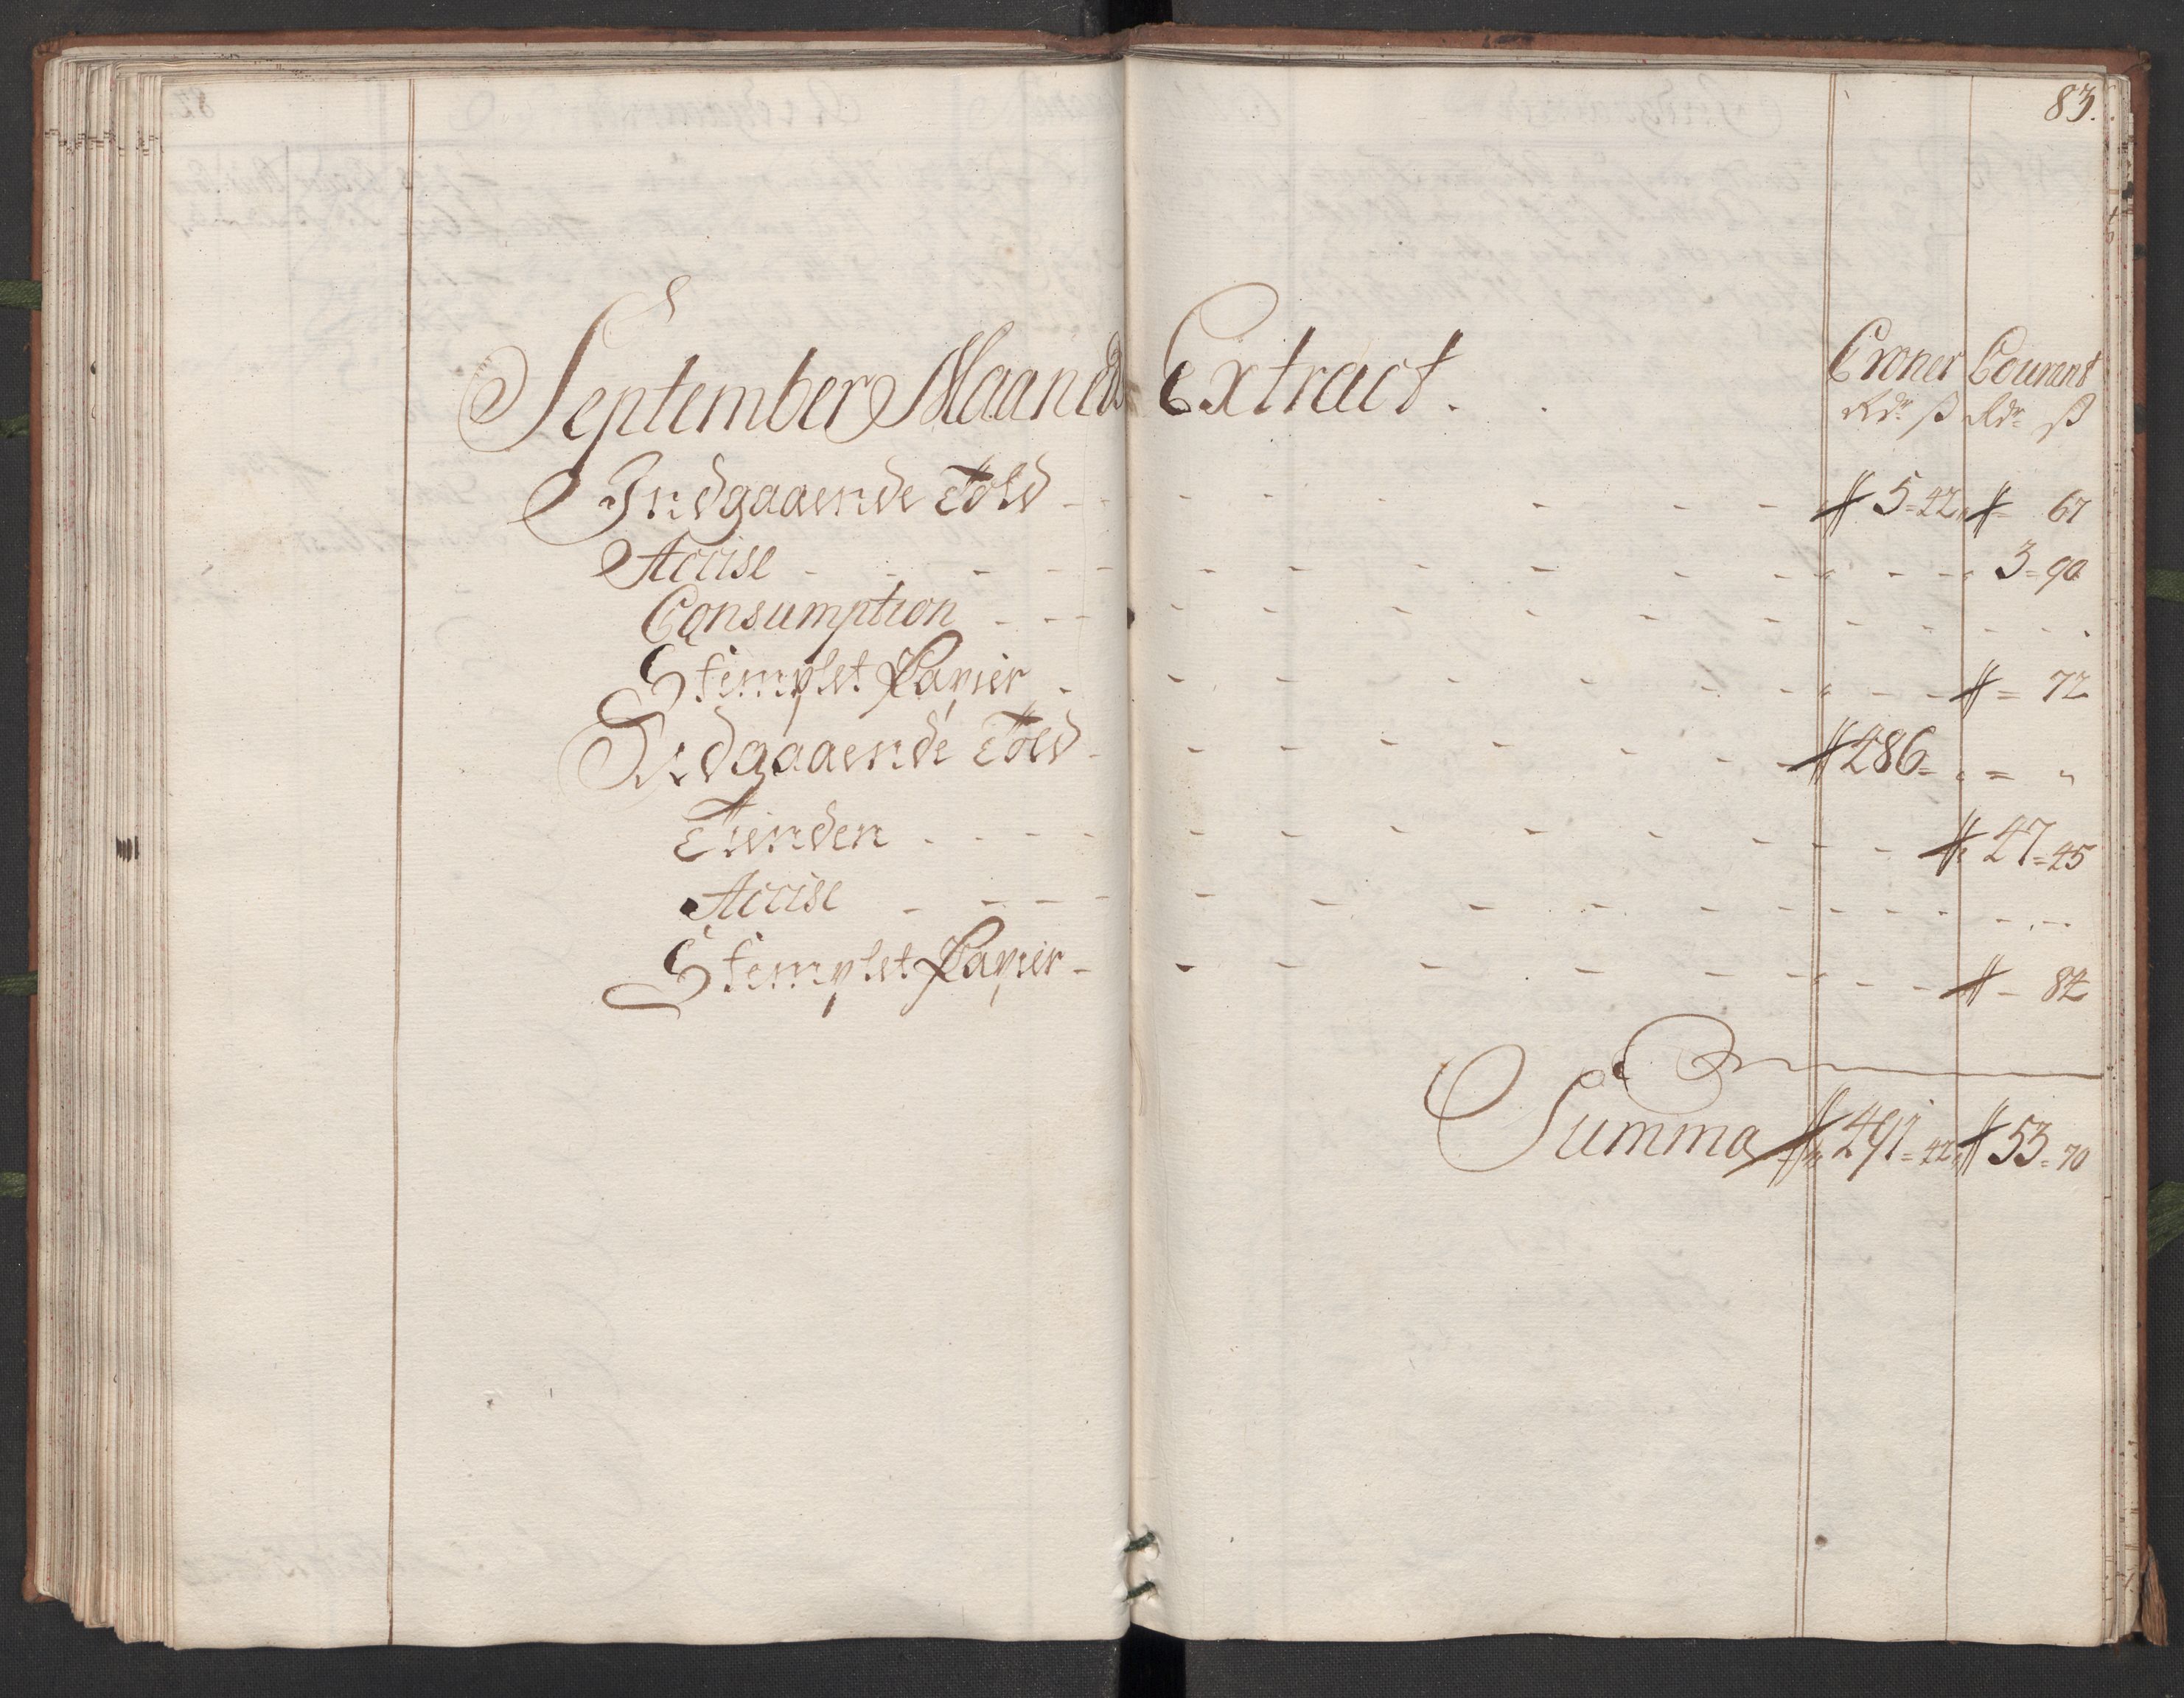 83.
September Maaneds Extract.
Croner Courant
Rdr ß Rdr ß
Indgaaende Told - - - - - - - 5 = 42 " - 67
Accise - - - - - - - - " - - " 3 = 90
Consumption - - - - - - - - - - - -
Stemplet Papier - - - - - - - " - - = 72
Udgaaende Told - - - - - - - 286 = " = "
Tienden - - - - - - - - - - - 47 = 45
Accise - - - - - - - - - - - - - -
Stemplet Papier - - - - - - - " - - - 82
Summa 291 = 42 " 53 = 70